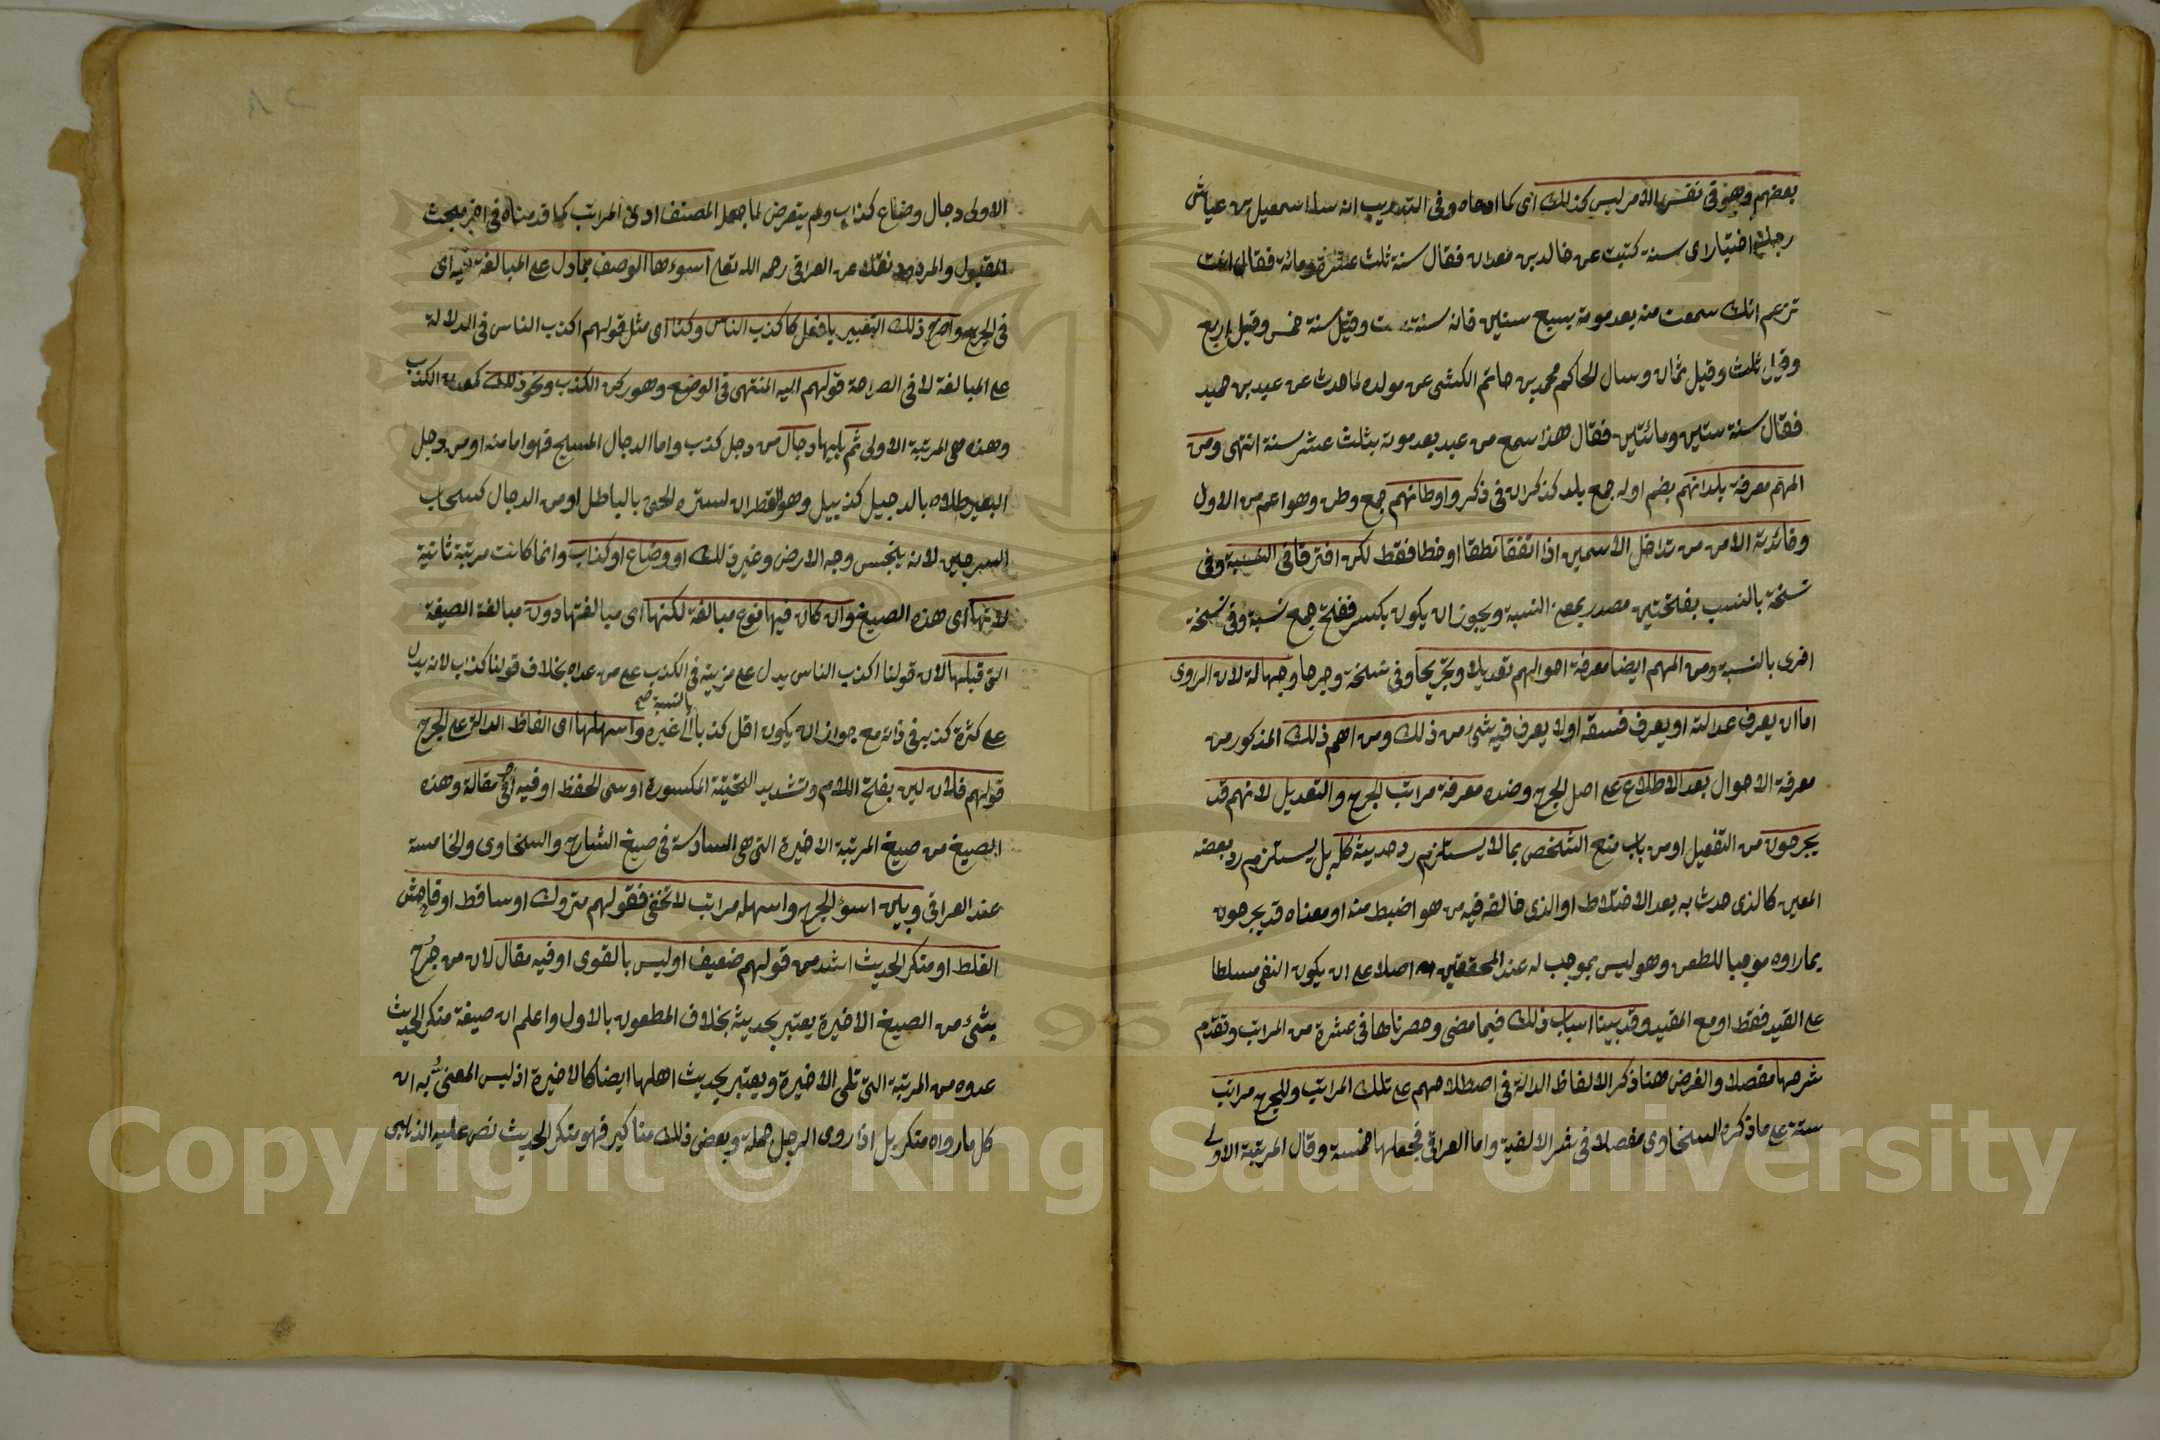 بعضهم وهو في نفس الامر ليس كذلك اى كما ادعاه وفي التدريب انه سال اسمعيل بن عياش
رجلا اختيارا اى سنة كتبت عن خالد بن معدان فقال سنة ثلث عشرة ومائة فقال انت
تزعم انك سمعت منه بعد موته بسبع سنين فانه سنة ست وقيل سنة خمس وقيل اربع
وقيل ثلث وقيل ثمان وسال الحاكم محمد بن حاتم الكشى عن مولده لما حدث عن عبد بن حميد
فقال سنة ستين ومائتين فقال هذا سمع من عبد بعد موته بثلث عشر سنة انتهى ومن
المهم معرفة بلدانهم بضم اوله جمع بلد كذكران في ذكر واوطانهم جمع وطن وهو اعم من الاول
وفائدته الامن من تداخل الاسمين اذا اتفقا نطقا او خطا فقط لكن افترقا في النسبة وفي
نسخة بالنسب بفتحتين مصدر بمعنى النسبة ويجوز ان يكون بكسر ففتح جمع نسبة وفي نسخة
اخرى بالنسبة ومن المهم ايضا معرفة احوالهم تعديلا وتجريحا وفي نسخة وجرحا وجهالة لان الراوى
اما ان يعرف عدالته او يعرف فسقه او لا يعرف فيه شئ من ذلك ومن اهم ذلك المذكور من
معرفة الاحوال بعد الاطلاع على اصل الجرح وضده معرفة مراتب الجرح والتعديل لانهم قد
يجرحون من التفعيل او من باب منع الشخص بما لا يستلزم رد حديثه كله بل يستلزم رد بعضه
المعين كالذى حدث به بعد الاختلاط او الذى خالفه فيه من هو اضبط منه او معناه قد يجرحون
بما راوه موجبا للطعن وهو ليس بموجب له عند المحققين اصلا على ان يكون النفى مسلطا
على القيد فقط او مع المقيد وقد بينا اسباب ذلك فيما مضى وحصرناها في عشرة من المراتب وتقدم
شرحها مفصلا والغرض هنا ذكر الالفاظ الدالة في اصطلاحهم على تلك المراتب وللجرح مراتب
ستة على ما ذكره السخاوى مفصلا في شرح الالفية واما العراقي فجعلها خمسة وقال المرتبة الاولى
الاولى دجال وضاع كذاب ولم يتعرض لما جعله المصنف ادنى المراتب كما قدمناه في اخر مبحث
المقبول والمردود نقلا عن العراقي رحمه الله تعالى اسوءها الوصف بما دل على المبالغة فيه اى
في الجرح واصرح ذلك التعبير بافعل كاكذب الناس وكذا اى مثل قولهم اكذب الناس في الدلالة
على المبالغة لا في الصراحة قولهم اليه المنتهى في الوضع وهو ركن الكذب ونحو ذلك كمعدن الكذب
وهذه هى المرتبة الاولى ثم يليها دجال من دجل كذب واما الدجال المسيح فهو اما منه او من دجل
البعير طلاه بالدجيل كذبيل وهو القطران لستره الحق بالباطل او من الدجال كسحاب
السرجين لانه ينجس وجه الارض وغير ذلك او وضاع او كذاب وانما كانت مرتبة ثانية
لانها اى هذه الصيغ وان كان فيها نوع مبالغة لكنها اى مبالغتها دون مبالغة الصيغة
التى قبلها لان قولنا اكذب الناس يدل على مزيته في الكذب على من عداه بخلاف قولنا كذاب لانه يدل
على كثرة كذبه في ذاته مع جواز ان يكون اقل كذبا بالنسبة الى غيره واسهلها اى الفاظ الدالة على الجرح
قولهم فلان لين بفتح اللام وتشديد التحتية المكسورة او سى الحفظ او فيه ادنى مقالة وهذه
الصيغ من صيغ المرتبة الاخيرة التى هى السادسة في صيغ الشارح والسخاوى والخامسة
عند العراقي وبين اسوء الجرح واسهله مراتب لا تخفى فقولهم متروك او ساقط او فاحش
الغلط او منكر الحديث اشد من قولهم ضعيف او ليس بالقوى او فيه مقال لان من جرح
بشئ من الصيغ الاخيرة يعتبر بحديثه بخلاف المطعون بالاول واعلم ان صيغة منكر الحديث
عدوه من المرتبة التى تلى الاخيرة ويعتبر بحديث اهلها ايضا كالاخيرة اذ ليس المعنى به ان
كل ما رواه منكر بل اذا روى الرجل جملة وبعض ذلك مناكير فهو منكر الحديث نص عليه الذهبى
Copyright © King Saud University